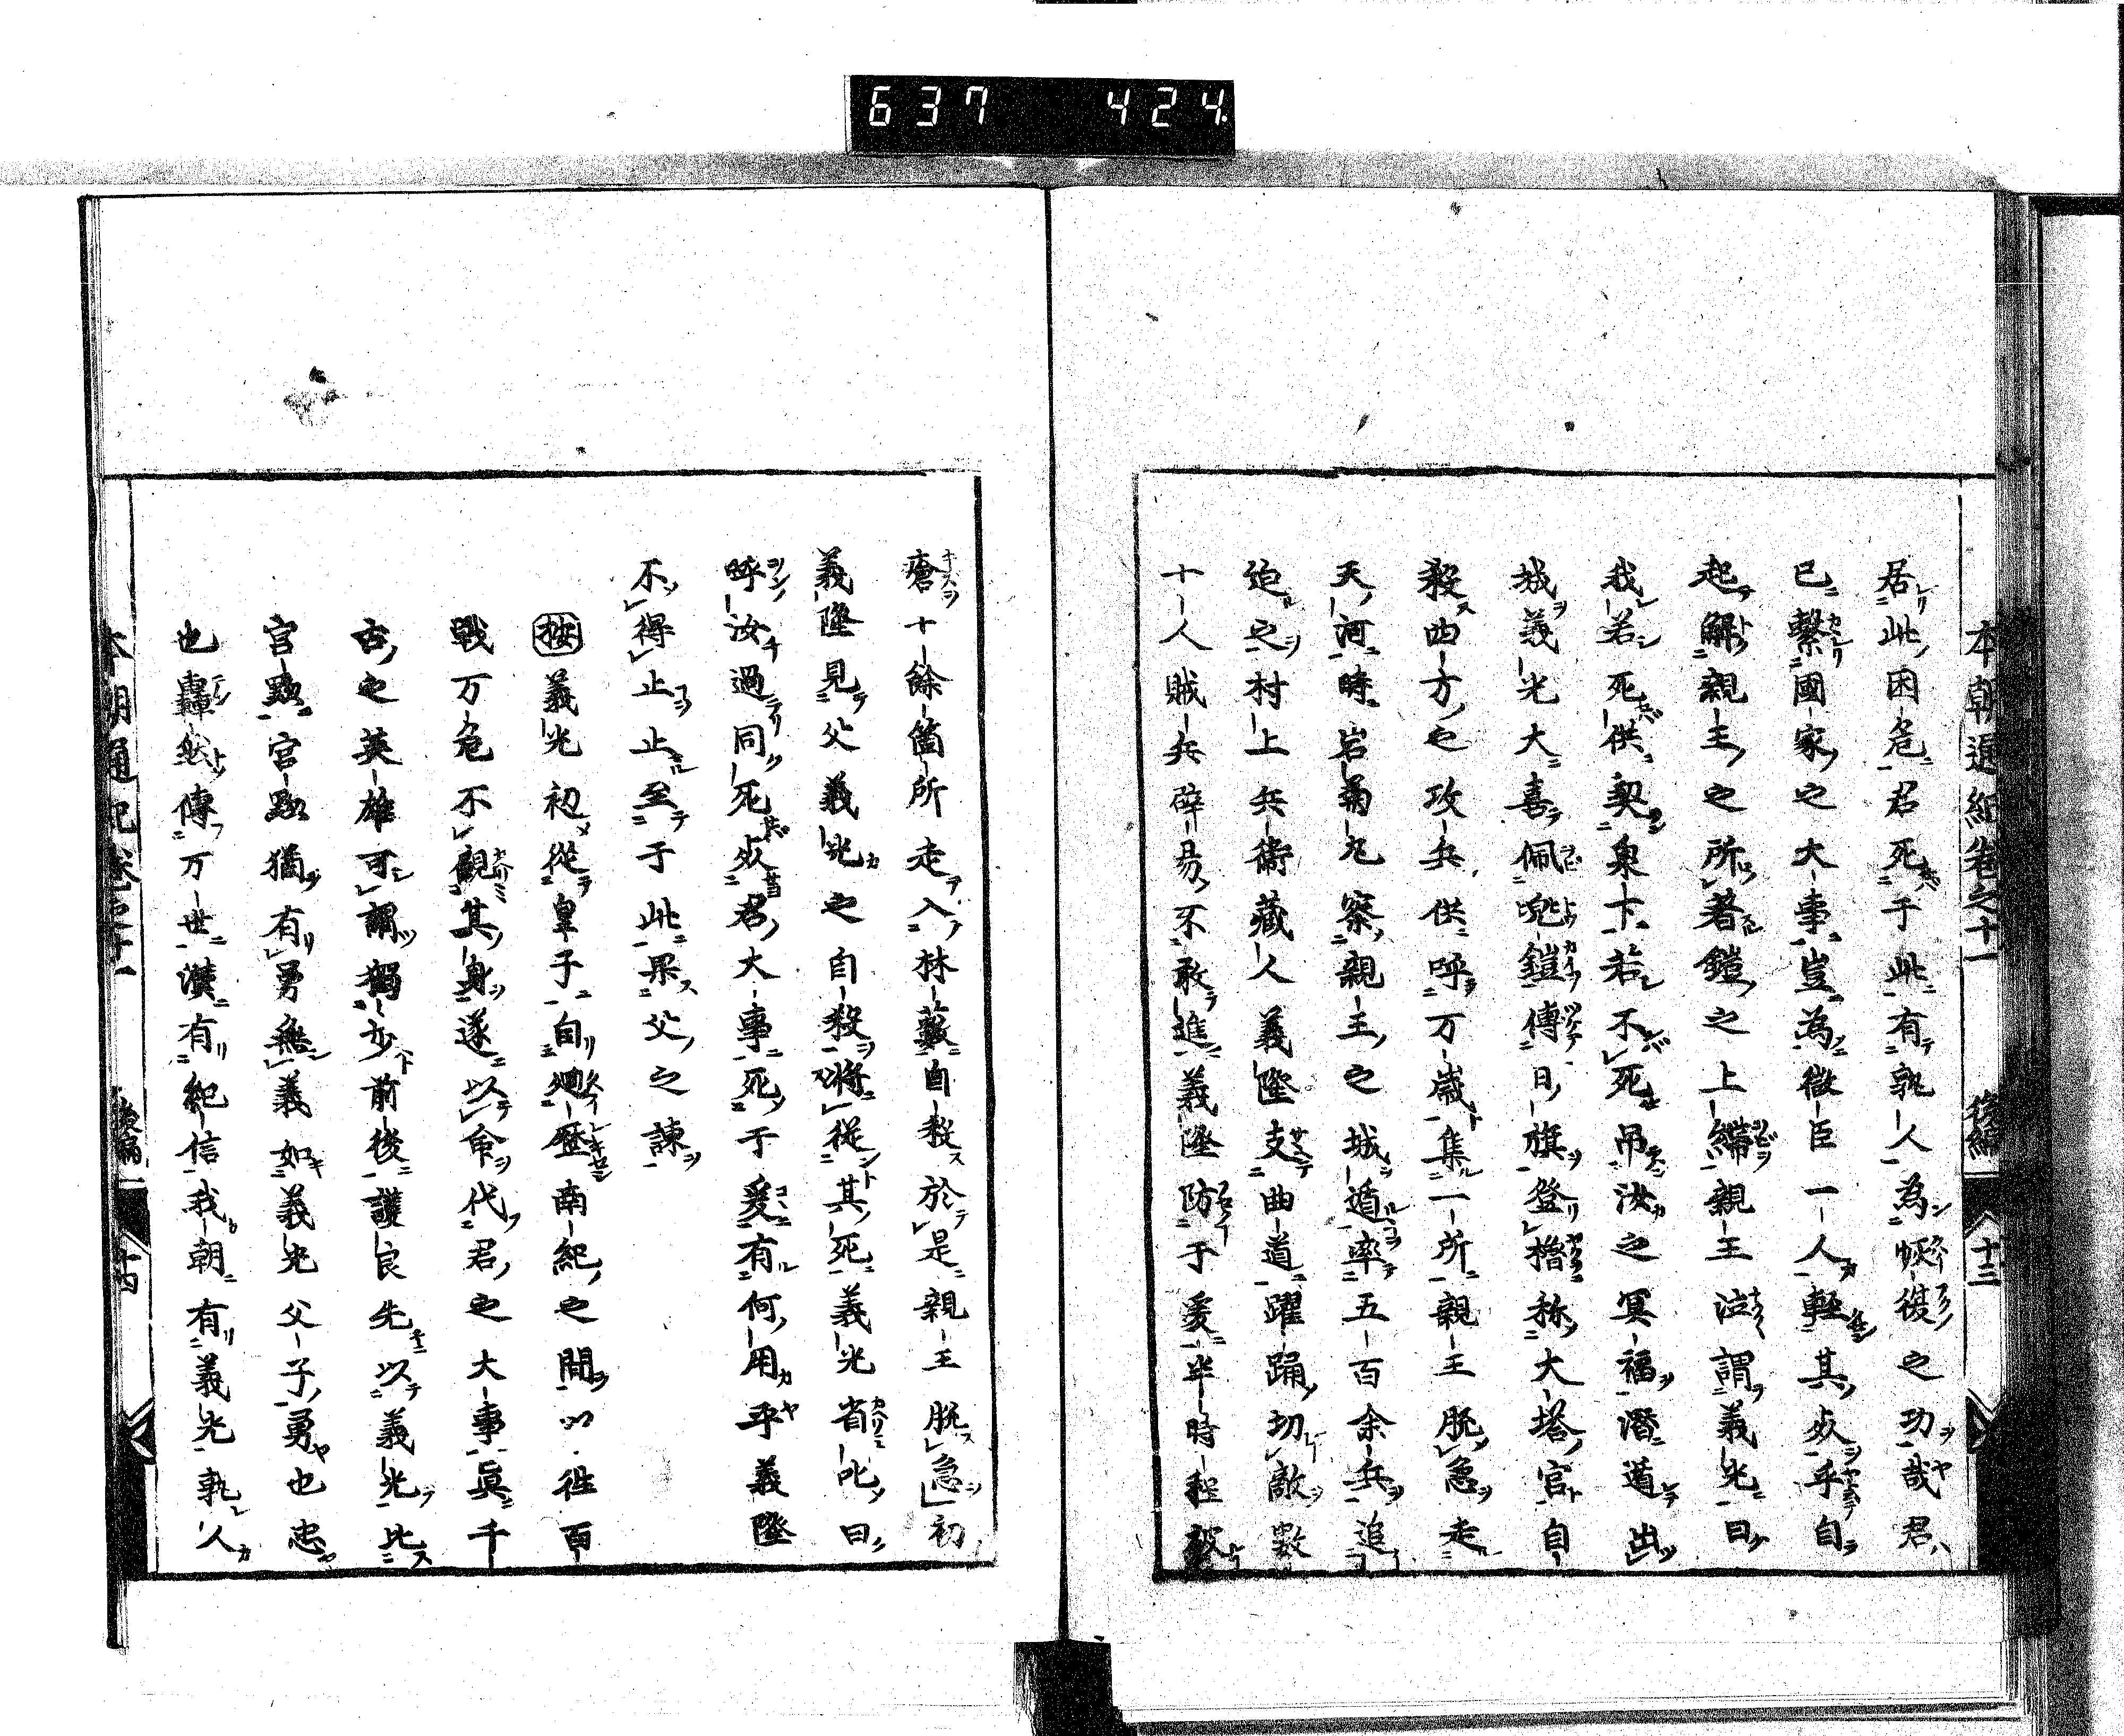 637 424
本朝通紀卷之十一 後編 十三
居此困危君死于此有孰人為恢復之功哉君
已繫國家之大事豈為微臣一人輕其必乎自
起解親王之所著鎧之上緖親王泣謂義光曰
我若死供契泉下若不死吊汝之冥福潛遁出
城義光大喜佩兜鎧傳日旗登櫓称大塔宮自
殺四方之攻兵供呼万歲集一所親王脫急走
天河時岩菊丸察親王之城遁率五百余兵追
迫之村上兵衛藏人義隆支曲道躍踊切敵數
十人賊兵碎易不敢進義隆防于爰半時程被
瘡十餘箇所走入林藪自殺於是親王脫急初
義隆見父義光之自殺將從其死義光省叱曰
呼汝過同死必君大事死于爰有何用乎義隆
不得止止至于此果父之諫
按義光初從皇子自廻歷南紀之間以徃百
戰万危不觀其身遂以命代君之大事眞千
古之英雄可謂獨步前後護良先以義光比
宮黝宮黝猶有勇無義如義光父子勇也忠
也轟然傳万世漢有紀信我朝有義光孰人
本朝通紀卷之十一 後編 十四